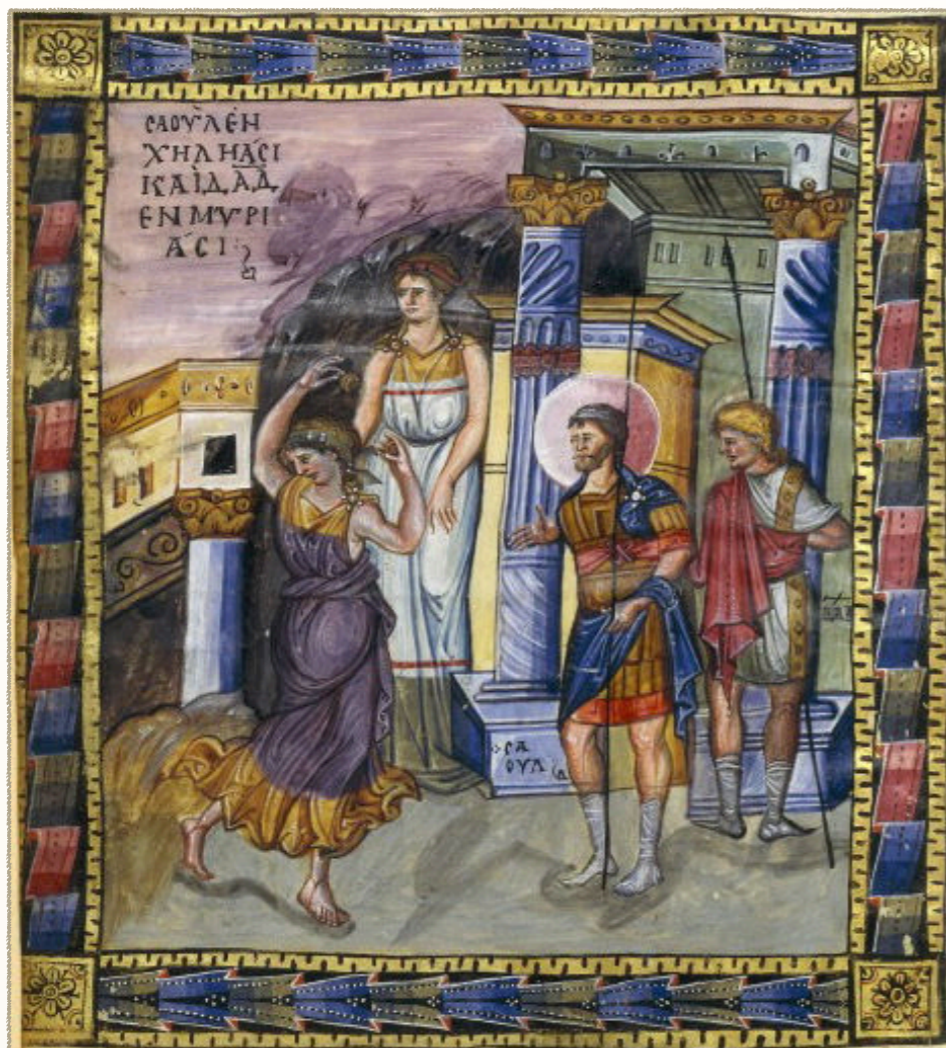 CΑΟΥΛ ΕΝ
ΧΗΛΗΑCΙ
ΚΑΙ ΔΑΔ
ΕΝ ΜΥΡΙ
ΑCΙ
CΑ
ΟΥΛ